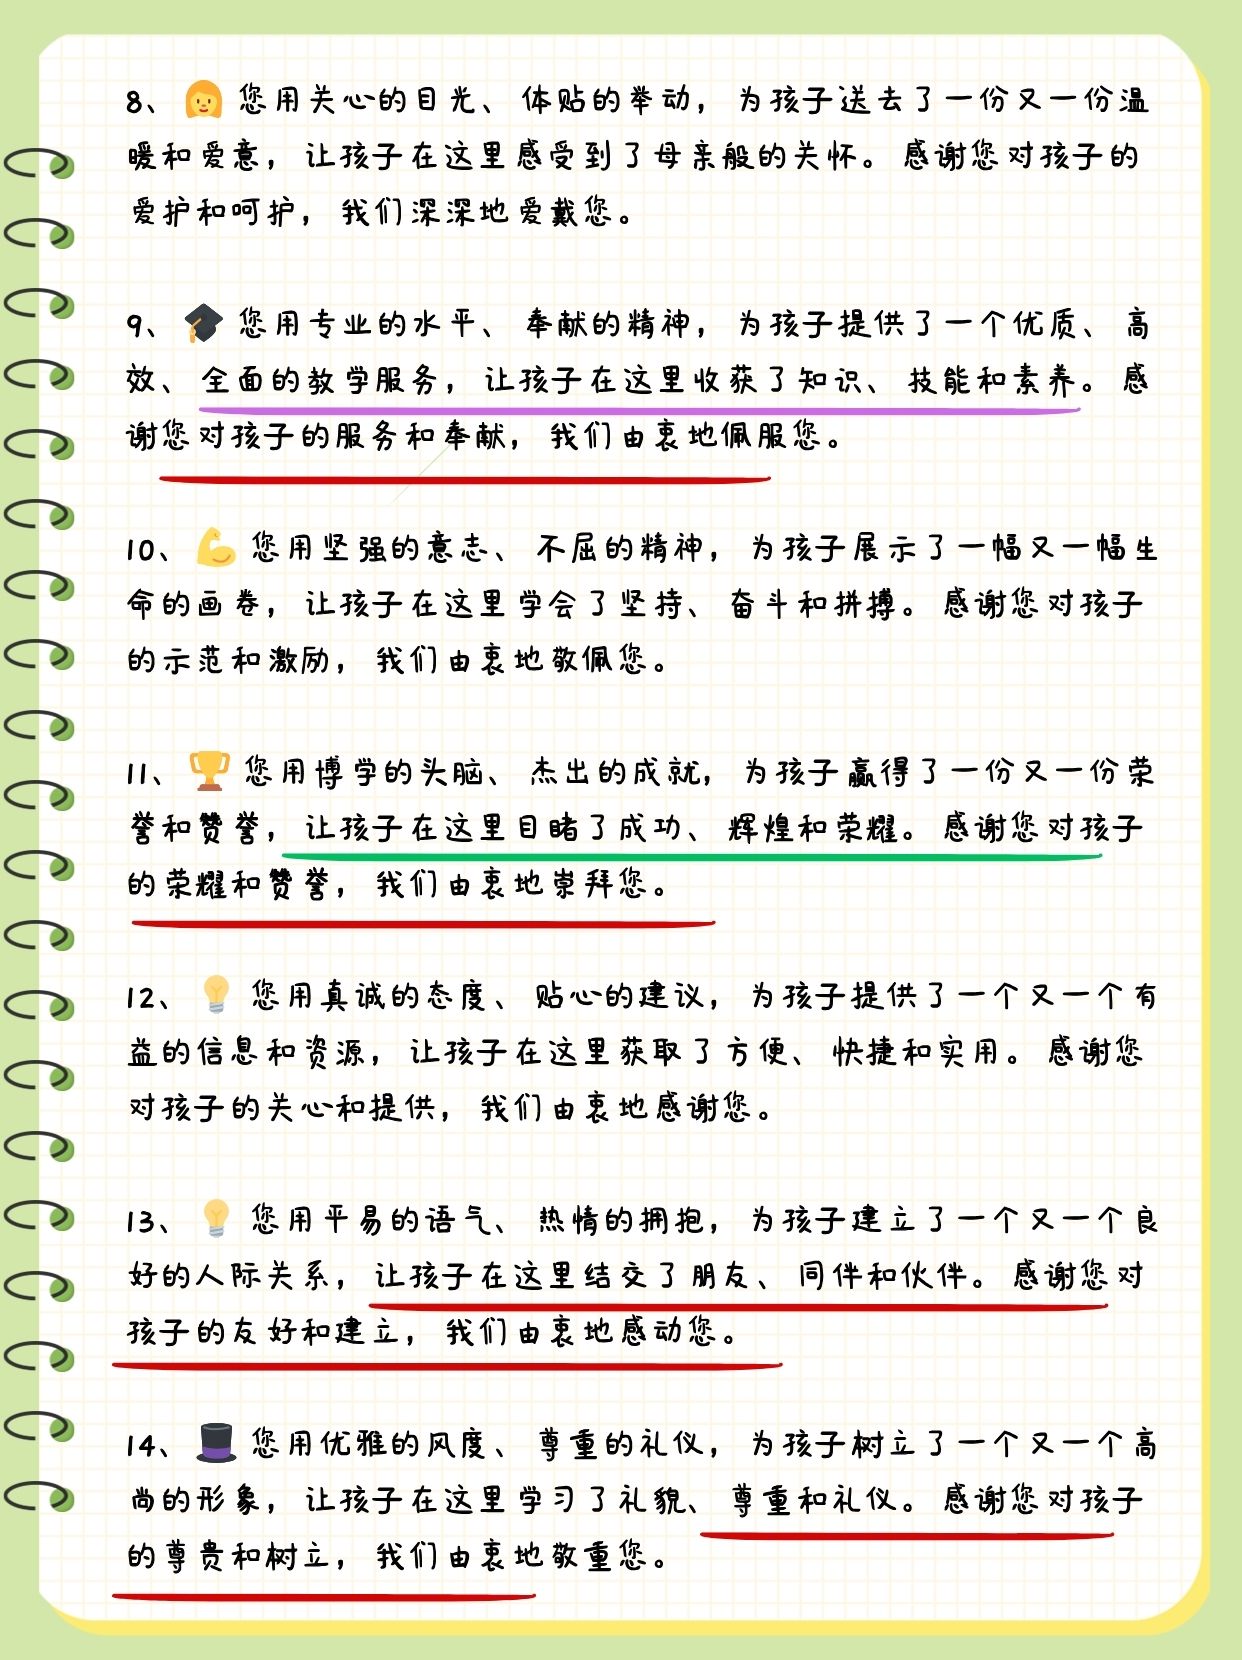 8、👩您用关心的目光、体贴的举动，为孩子送去了一份又一份温
暖和爱意，让孩子在这里感受到了母亲般的关怀。感谢您对孩子的
爱护和呵护，我们深深地爱戴您。
9、🎓您用专业的水平、奉献的精神，为孩子提供了一个优质、高
效、全面的教学服务，让孩子在这里收获了知识、技能和素养。感
谢您对孩子的服务和奉献，我们由衷地佩服您。
10、💪您用坚强的意志、不屈的精神，为孩子展示了一幅又一幅生
命的画卷，让孩子在这里学会了坚持、奋斗和拼搏。感谢您对孩子
的示范和激励，我们由衷地敬佩您。
11、🏆您用博学的头脑、杰出的成就，为孩子赢得了一份又一份荣
誉和赞誉，让孩子在这里目睹了成功、辉煌和荣耀。感谢您对孩子
的荣耀和赞誉，我们由衷地崇拜您。
12、💡您用真诚的态度、贴心的建议，为孩子提供了一个又一个有
益的信息和资源，让孩子在这里获取了方便、快捷和实用。感谢您
对孩子的关心和提供，我们由衷地感谢您。
13、💡您用平易的语气、热情的拥抱，为孩子建立了一个又一个良
好的人际关系，让孩子在这里结交了朋友、同伴和伙伴。感谢您对
孩子的友好和建立，我们由衷地感动您。
14、🎩您用优雅的风度、尊重的礼仪，为孩子树立了一个又一个高
尚的形象，让孩子在这里学习了礼貌、尊重和礼仪。感谢您对孩子
的尊贵和树立，我们由衷地敬重您。